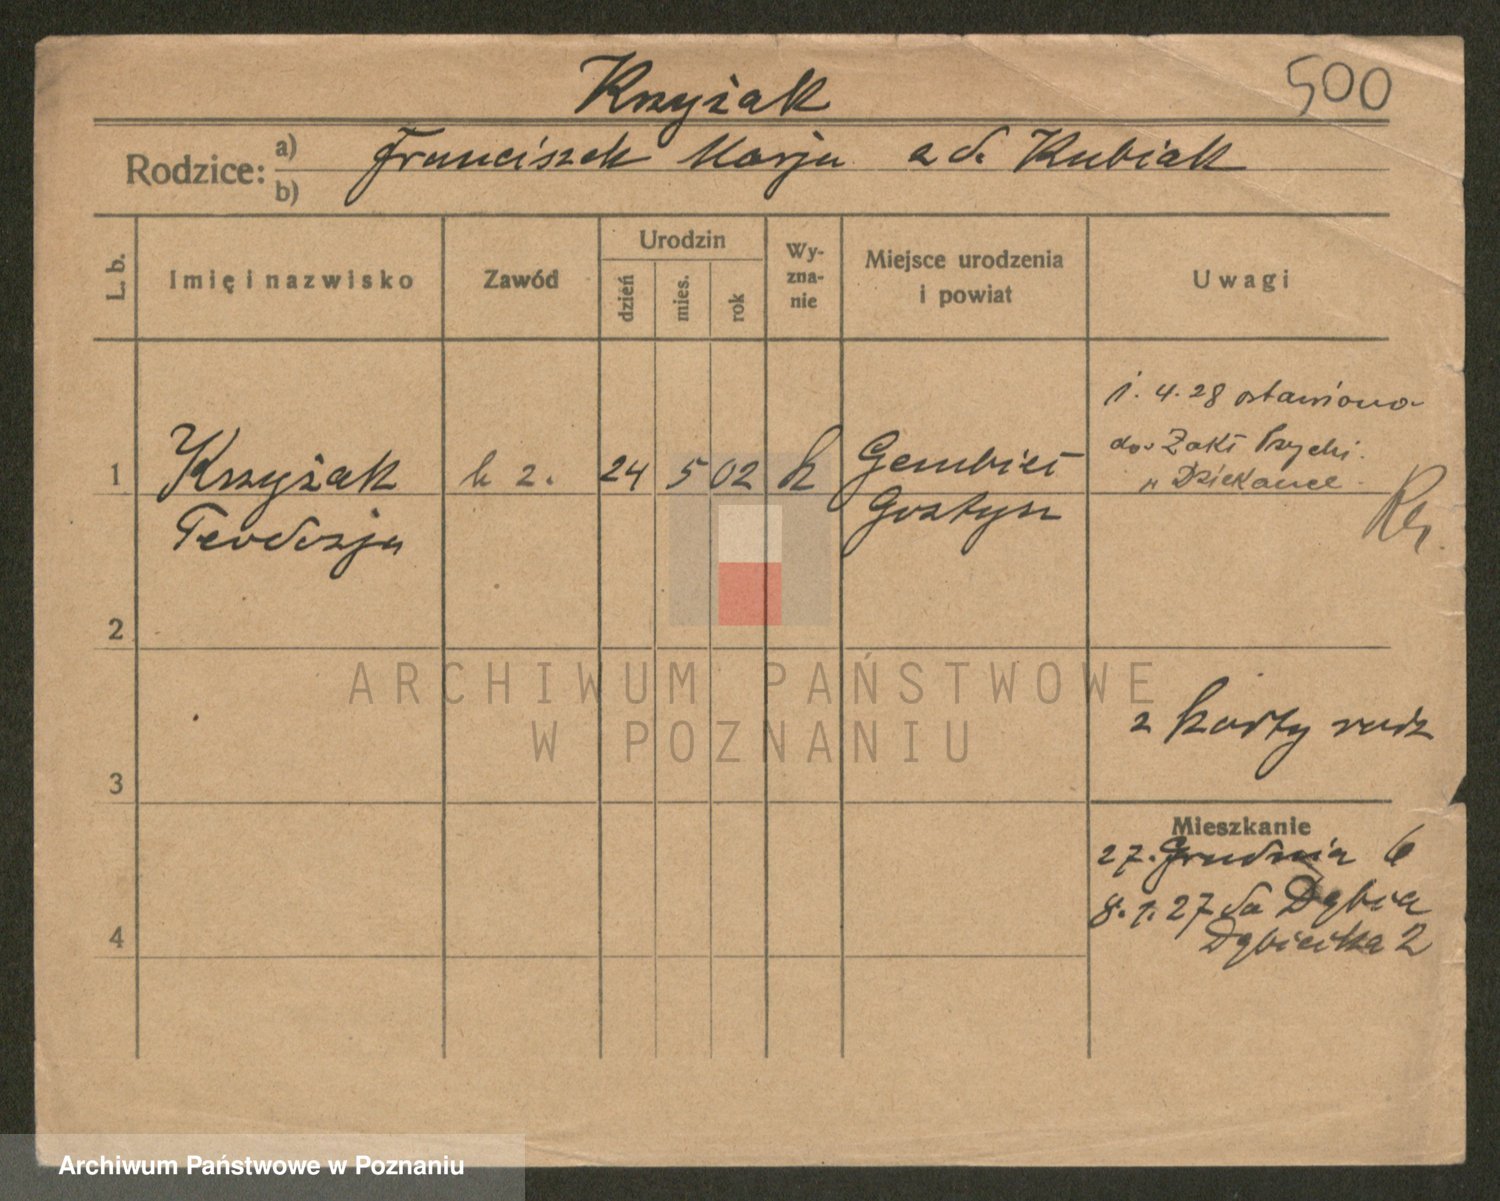 Krzyżak
500
Rodzice: a) Franciszek Marja z d. Kubiak
b)
L. b.
Imię i nazwisko
Zawód
Urodzin
dzień
mies.
rok
Wy-
zna-
nie
Miejsce urodzenia
i powiat
Uwagi
1 Krzyżak
Teodozja
24 5 02 k
Gembice
Gostyń
1. 4. 28 ostawiono
do Zakł Psychi.
w Dziekance
2
3
z karty rodz
4
Mieszkanie
27. Grudnia 6
8. 1. 27 do Dąbia
2
ARCHIWUM PAŃSTWOWE
W POZNANIU
Archiwum Państwowe w Poznaniu